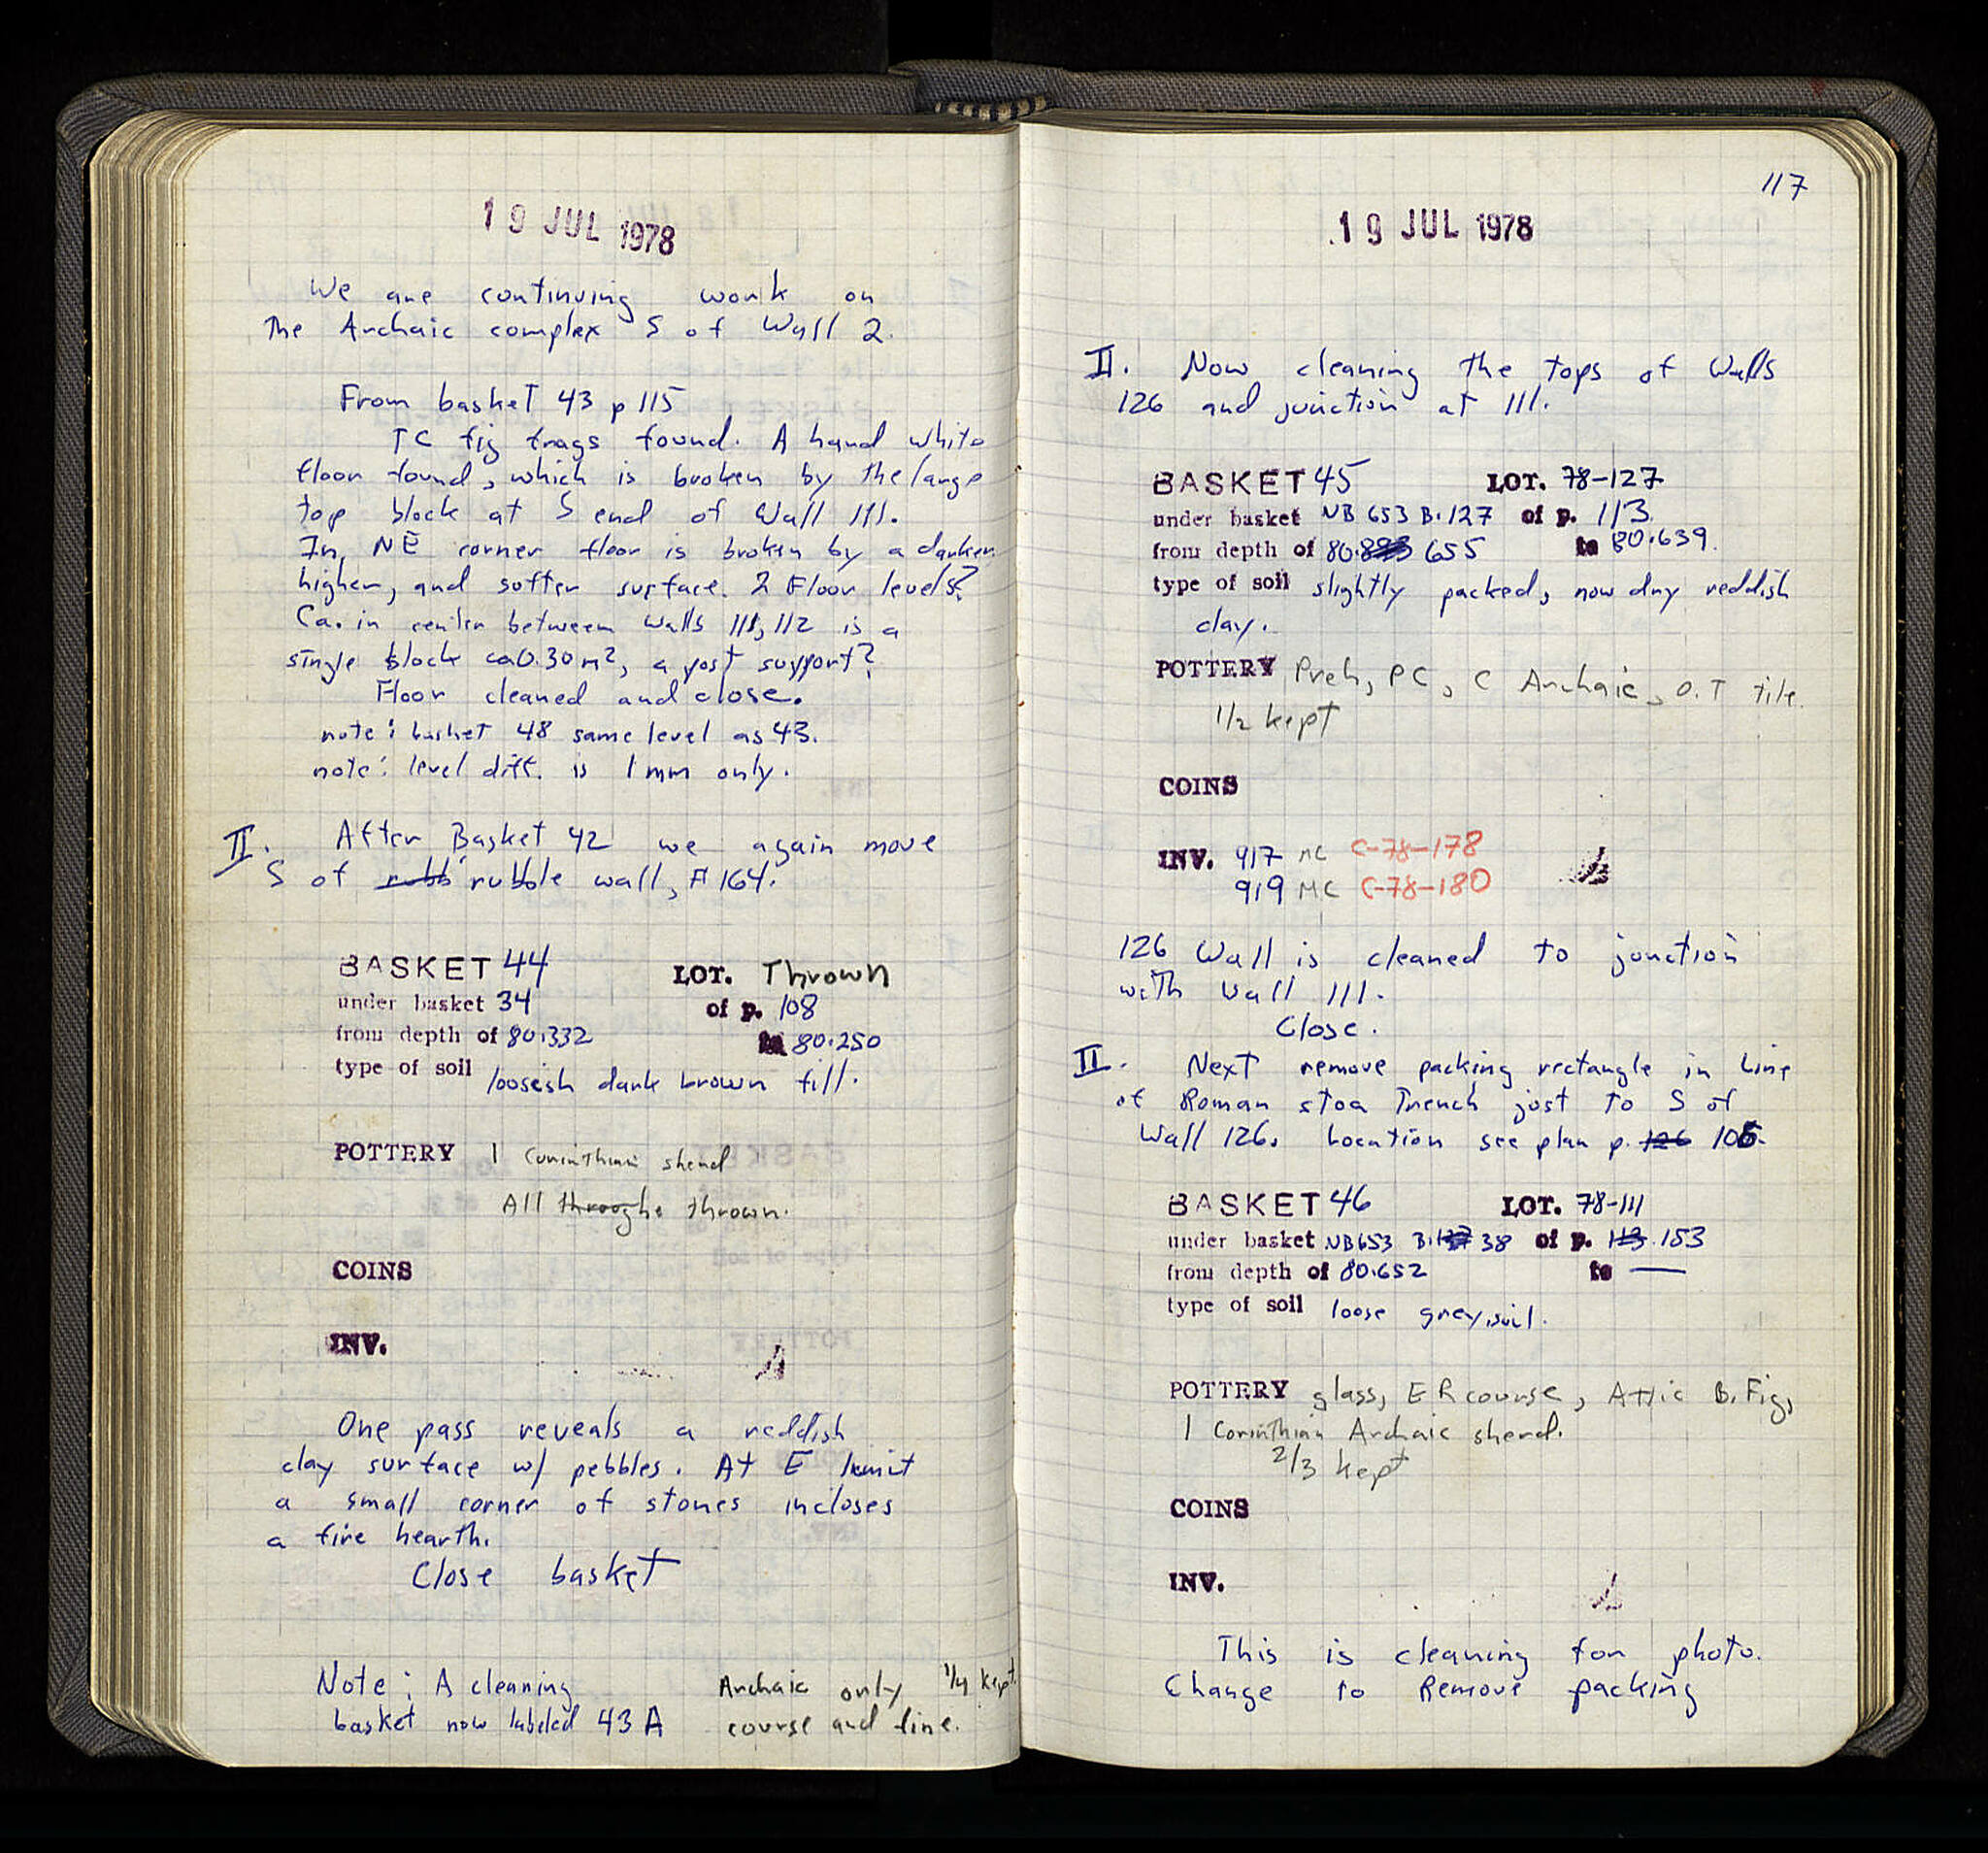 19 JUL 1978
We are continuing work on
The Archaic complex S of Wall 2.
From basket 43 p 115
TC fig frags found. A hard white
floor found, which is broken by the large
top block at S end of Wall 111.
In NE corner floor is broken by a darker
higher, and softer surface. 2 Floor levels?
Ca. in center between walls 111, 112 is a
single block ca 0.30 m², a post support?
Floor cleaned and close.
note: basket 48 same level as 43.
note: level diff. is 1 mm only.
II. After Basket 42 we again move
S of rubb rubble wall, # 164.
BASKET 44 LOT. Thrown
under basket 34 of p. 108
from depth of 80.332 to 80.250
type of soil loosesh dark brown fill.
POTTERY 1 Corinthian sherd
All throughe thrown.
COINS
INV.
One pass reveals a reddish
clay surface w/ pebbles. At E limit
a small corner of stones incloses
a fire hearth.
Close basket
Note: A cleaning Archaic only 1/4 kept.
basket now labeled 43 A course and fine.
117
19 JUL 1978
II. Now cleaning the tops of Walls
126 and junction at 111.
BASKET 45 LOT. 78-127
under basket NB 653 B.127 of p. 113.
from depth of 80. 655 to 80.639.
type of soil slightly packed, now dry reddish
clay.
POTTERY Preh, PC, C Archaic, O.T tile.
1/2 kept
COINS
INV. 917 MC C-78-178
919 MC C-78-180
126 Wall is cleaned to junction
with Wall 111.
Close.
II. Next remove packing rectangle in Line
of Roman stoa Trench just to S of
Wall 126. Location see plan p. 126 105.
BASKET 46 LOT. 78-111
under basket NB653 B. 38 of p. 113. 153
from depth of 80.652 to —
type of soil loose grey soil.
POTTERY glass, ER course, Attic B. Fig,
1 Corinthian Archaic sherd.
2/3 kept
COINS
INV.
This is cleaning for photo.
Change to Remove packing